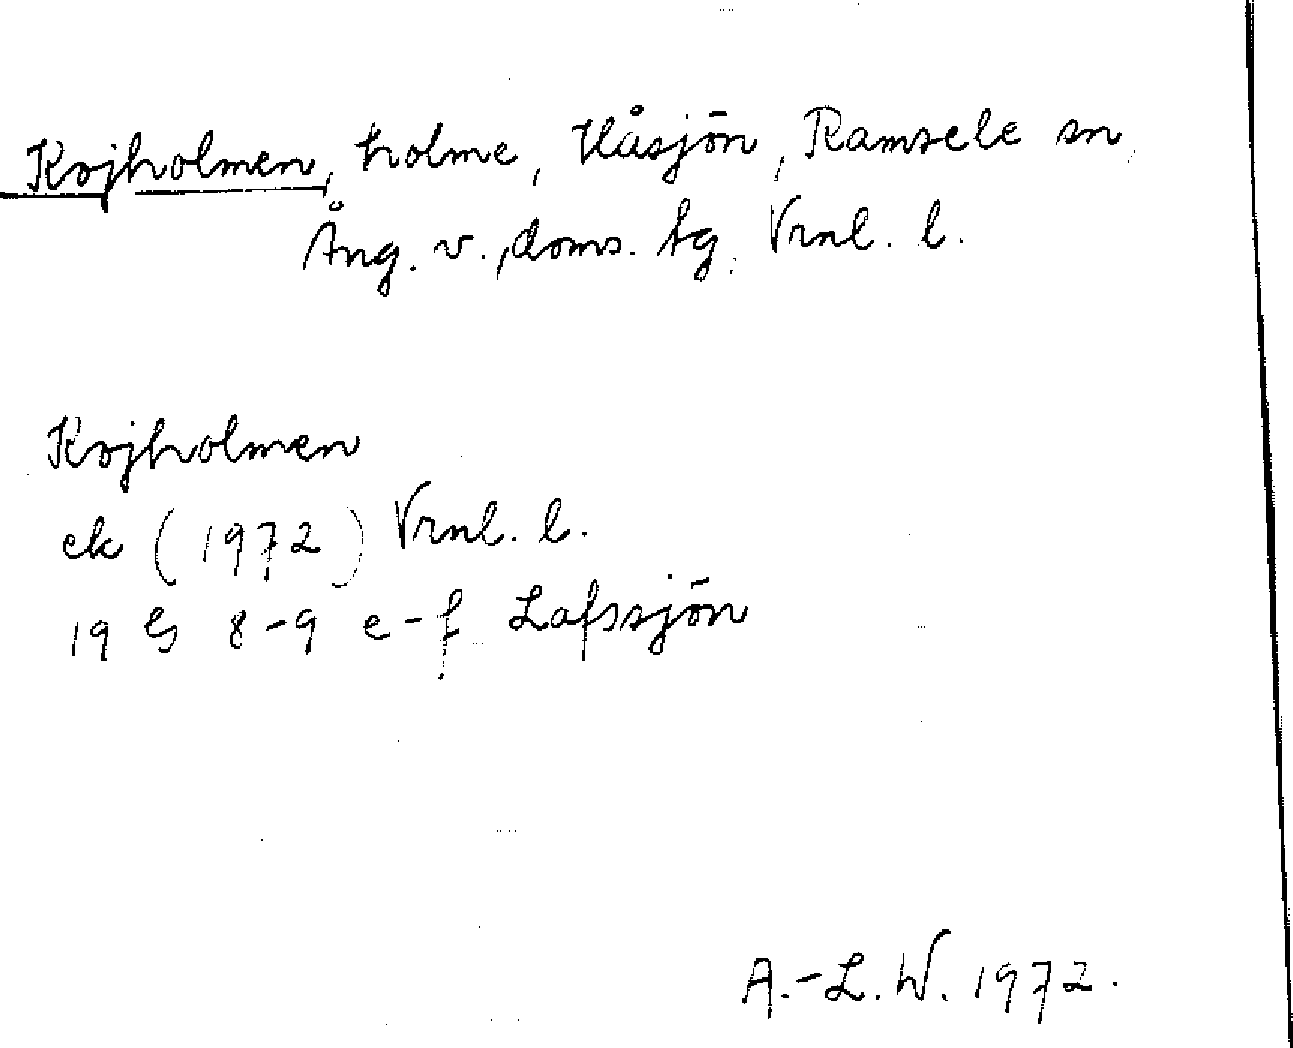 Kojholmen, holme, Håsjön, Ramsele sn,
Ång. v., doms. tg, Vrnl. l.
Kojholmen
ek (1972) Vrnl. l.
19 G 8-9 e-f Lafssjön
A.-L. W. 1972.